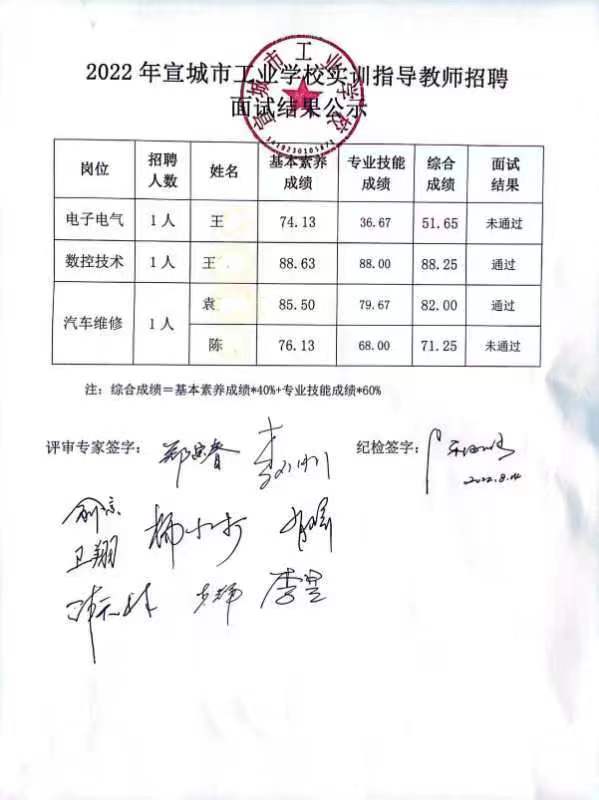 2022年宣城市工业学校实训指导教师招聘
面试结果公示
宣城市工业学校
岗位 招聘人数 姓名 基本素养成绩 专业技能成绩 综合成绩 面试结果
电子电气 1人 王 74.13 36.67 51.65 未通过
数控技术 1人 王 88.63 88.00 88.25 通过
汽车维修 1人 袁 85.50 79.67 82.00 通过
陈 76.13 68.00 71.25 未通过
注:综合成绩=基本素养成绩*40%+专业技能成绩*60%
评审专家签字: 郑 睿 纪检签字:
卫翔
李昱